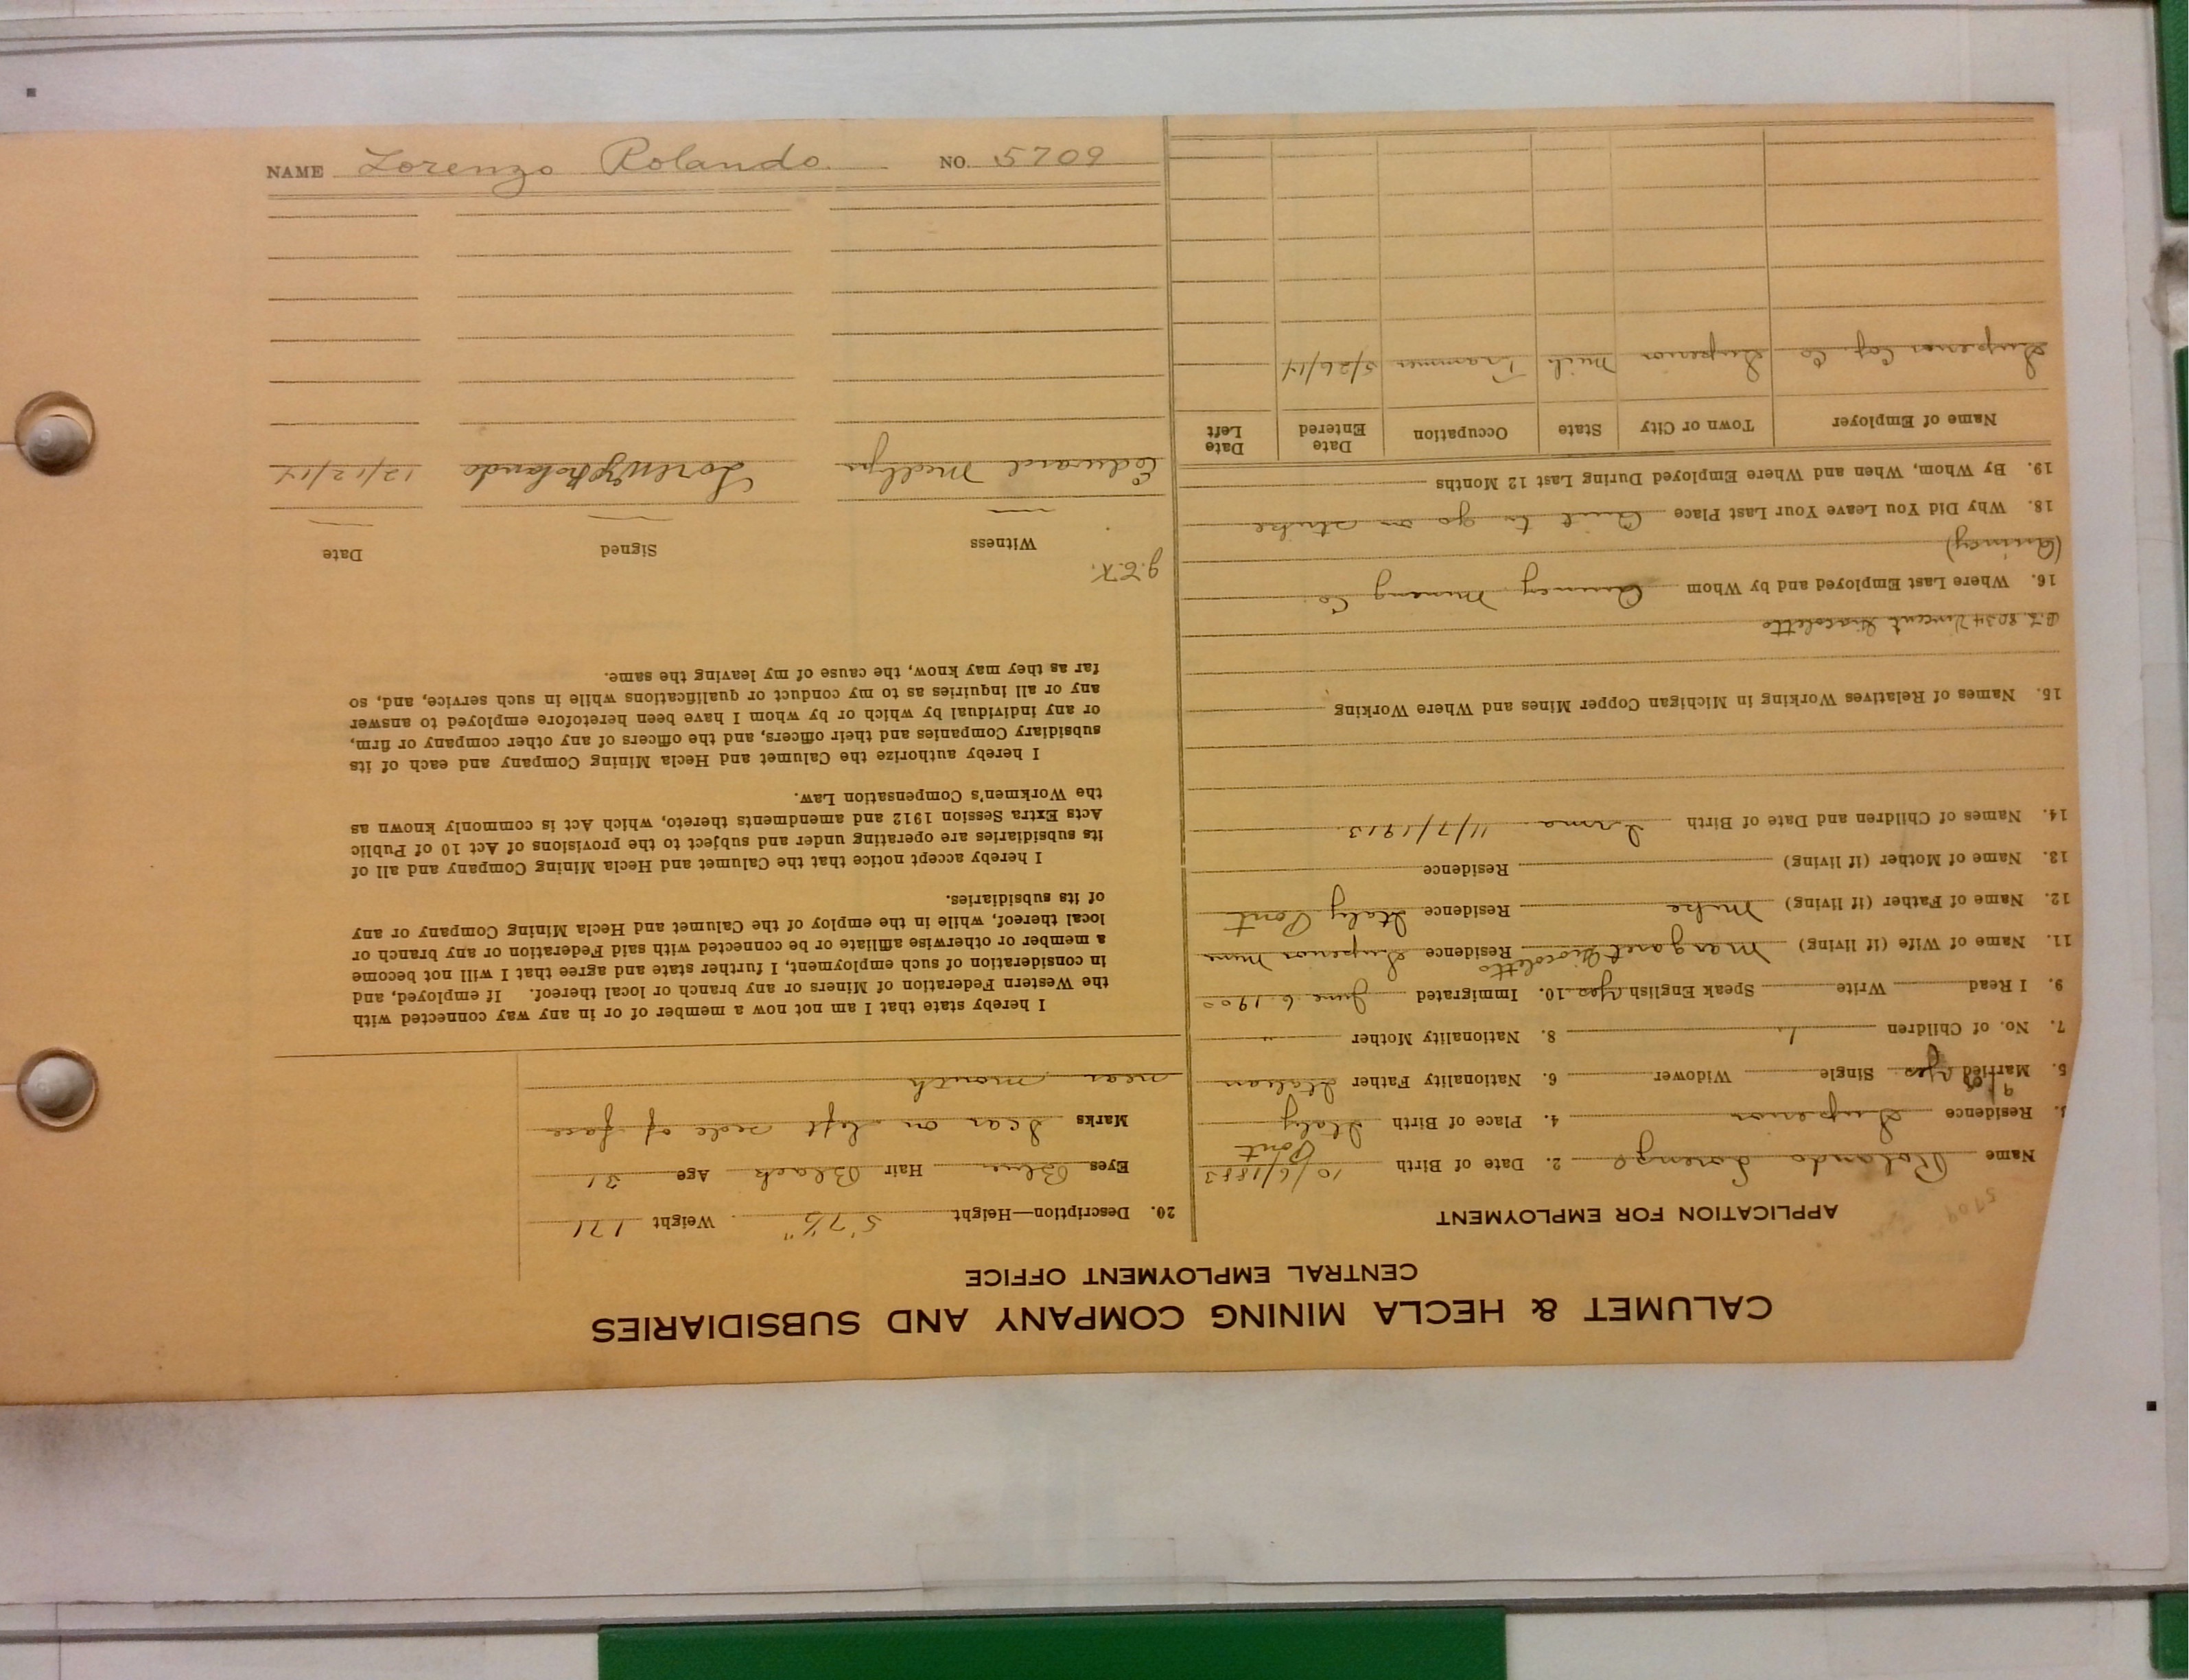 CALUMET & HECLA MINING COMPANY AND SUBSIDIARIES
CENTRAL EMPLOYMENT OFFICE
APPLICATION FOR EMPLOYMENT
5709
Name Rolando Lorenzo 2. Date of Birth 10/6/1883
Pont
3. Residence Superior 4. Place of Birth Italy
5. Married Yes Single Widower 6. Nationality Father Italian
7. No. of Children 1 8. Nationality Mother "
9. I Read Write Speak English Yes 10. Immigrated June 6 1900
11. Name of Wife (if living) Margaret Giocoletto Residence Superior Mine
12. Name of Father (if living) Mike Residence Italy Pont
13. Name of Mother (if living) Residence
14. Names of Children and Date of Birth Irma 11/7/1913
15. Names of Relatives Working in Michigan Copper Mines and Where Working
8034 Vincent Giacoletto
16. Where Last Employed and by Whom Quincy Mining Co.
(Quincy)
18. Why Did You Leave Your Last Place Quit to go on strike
19. By Whom, When and Where Employed During Last 12 Months
Name of Employer Town or City State Occupation Date Entered Date Left
Superior Cop. Co Superior Mich Trammer 5/26/14
20. Description—Height 5' 7½" Weight 171
Eyes Blue Hair Black Age 31
Marks Scar on left side of face
near mouth
I hereby state that I am not now a member of or in any way connected with
the Western Federation of Miners or any branch or local thereof. If employed, and
in consideration of such employment, I further state and agree that I will not become
a member or otherwise affiliate or be connected with said Federation or any branch or
local thereof, while in the employ of the Calumet and Hecla Mining Company or any
of its subsidiaries.
I hereby accept notice that the Calumet and Hecla Mining Company and all of
its subsidiaries are operating under and subject to the provisions of Act 10 of Public
Acts Extra Session 1912 and amendments thereto, which Act is commonly known as
the Workmen's Compensation Law.
I hereby authorize the Calumet and Hecla Mining Company and each of its
subsidiary Companies and their officers, and the officers of any other company or firm,
or any individual by which or by whom I have been heretofore employed to answer
any or all inquiries as to my conduct or qualifications while in such service, and, so
far as they may know, the cause of my leaving the same.
J.E.K.
Witness Signed Date
Edward Lorenzo Rolando 12/12/14
NAME Lorenzo Rolando. NO. 5709